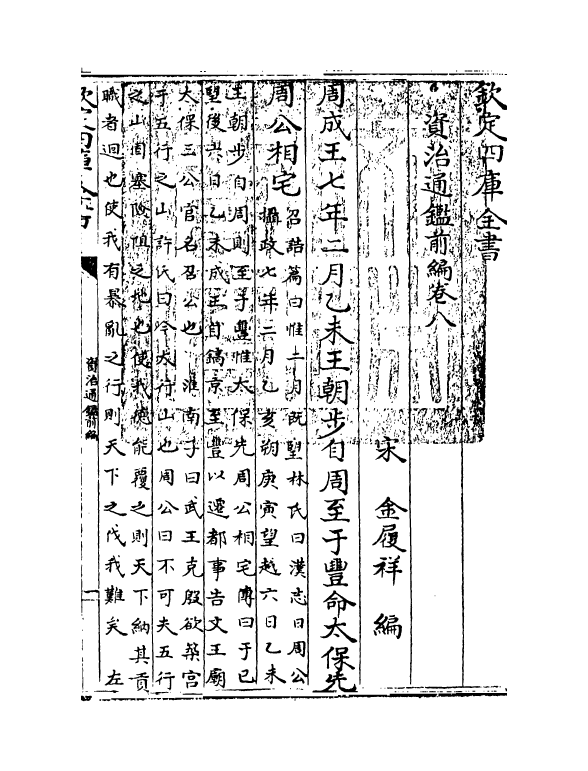 欽定四庫全書
資治通鑑前編卷八
宋　金履祥　編
周成王七年二月乙未王朝步自周至于豐命太保先
周公相宅
召誥篇曰惟二月既望林氏曰漢志曰周公
攝政七年二月乙亥朔庚寅望越六日乙未
王朝步自周則至于豐惟太保先周公相宅傳曰于已
望後六日乙未成王自鎬京至豐以遷都事告文王廟
太保三公官名召公也　淮南子曰武王克殷欲築宮
于五行之山許氏曰今太行山也周公曰不可夫五行
之山固塞險阻之地也使我德能覆之則天下納其貢
職者迴也使我有暴亂之行則天下之伐我難矣　左
資治通鑑前編
一